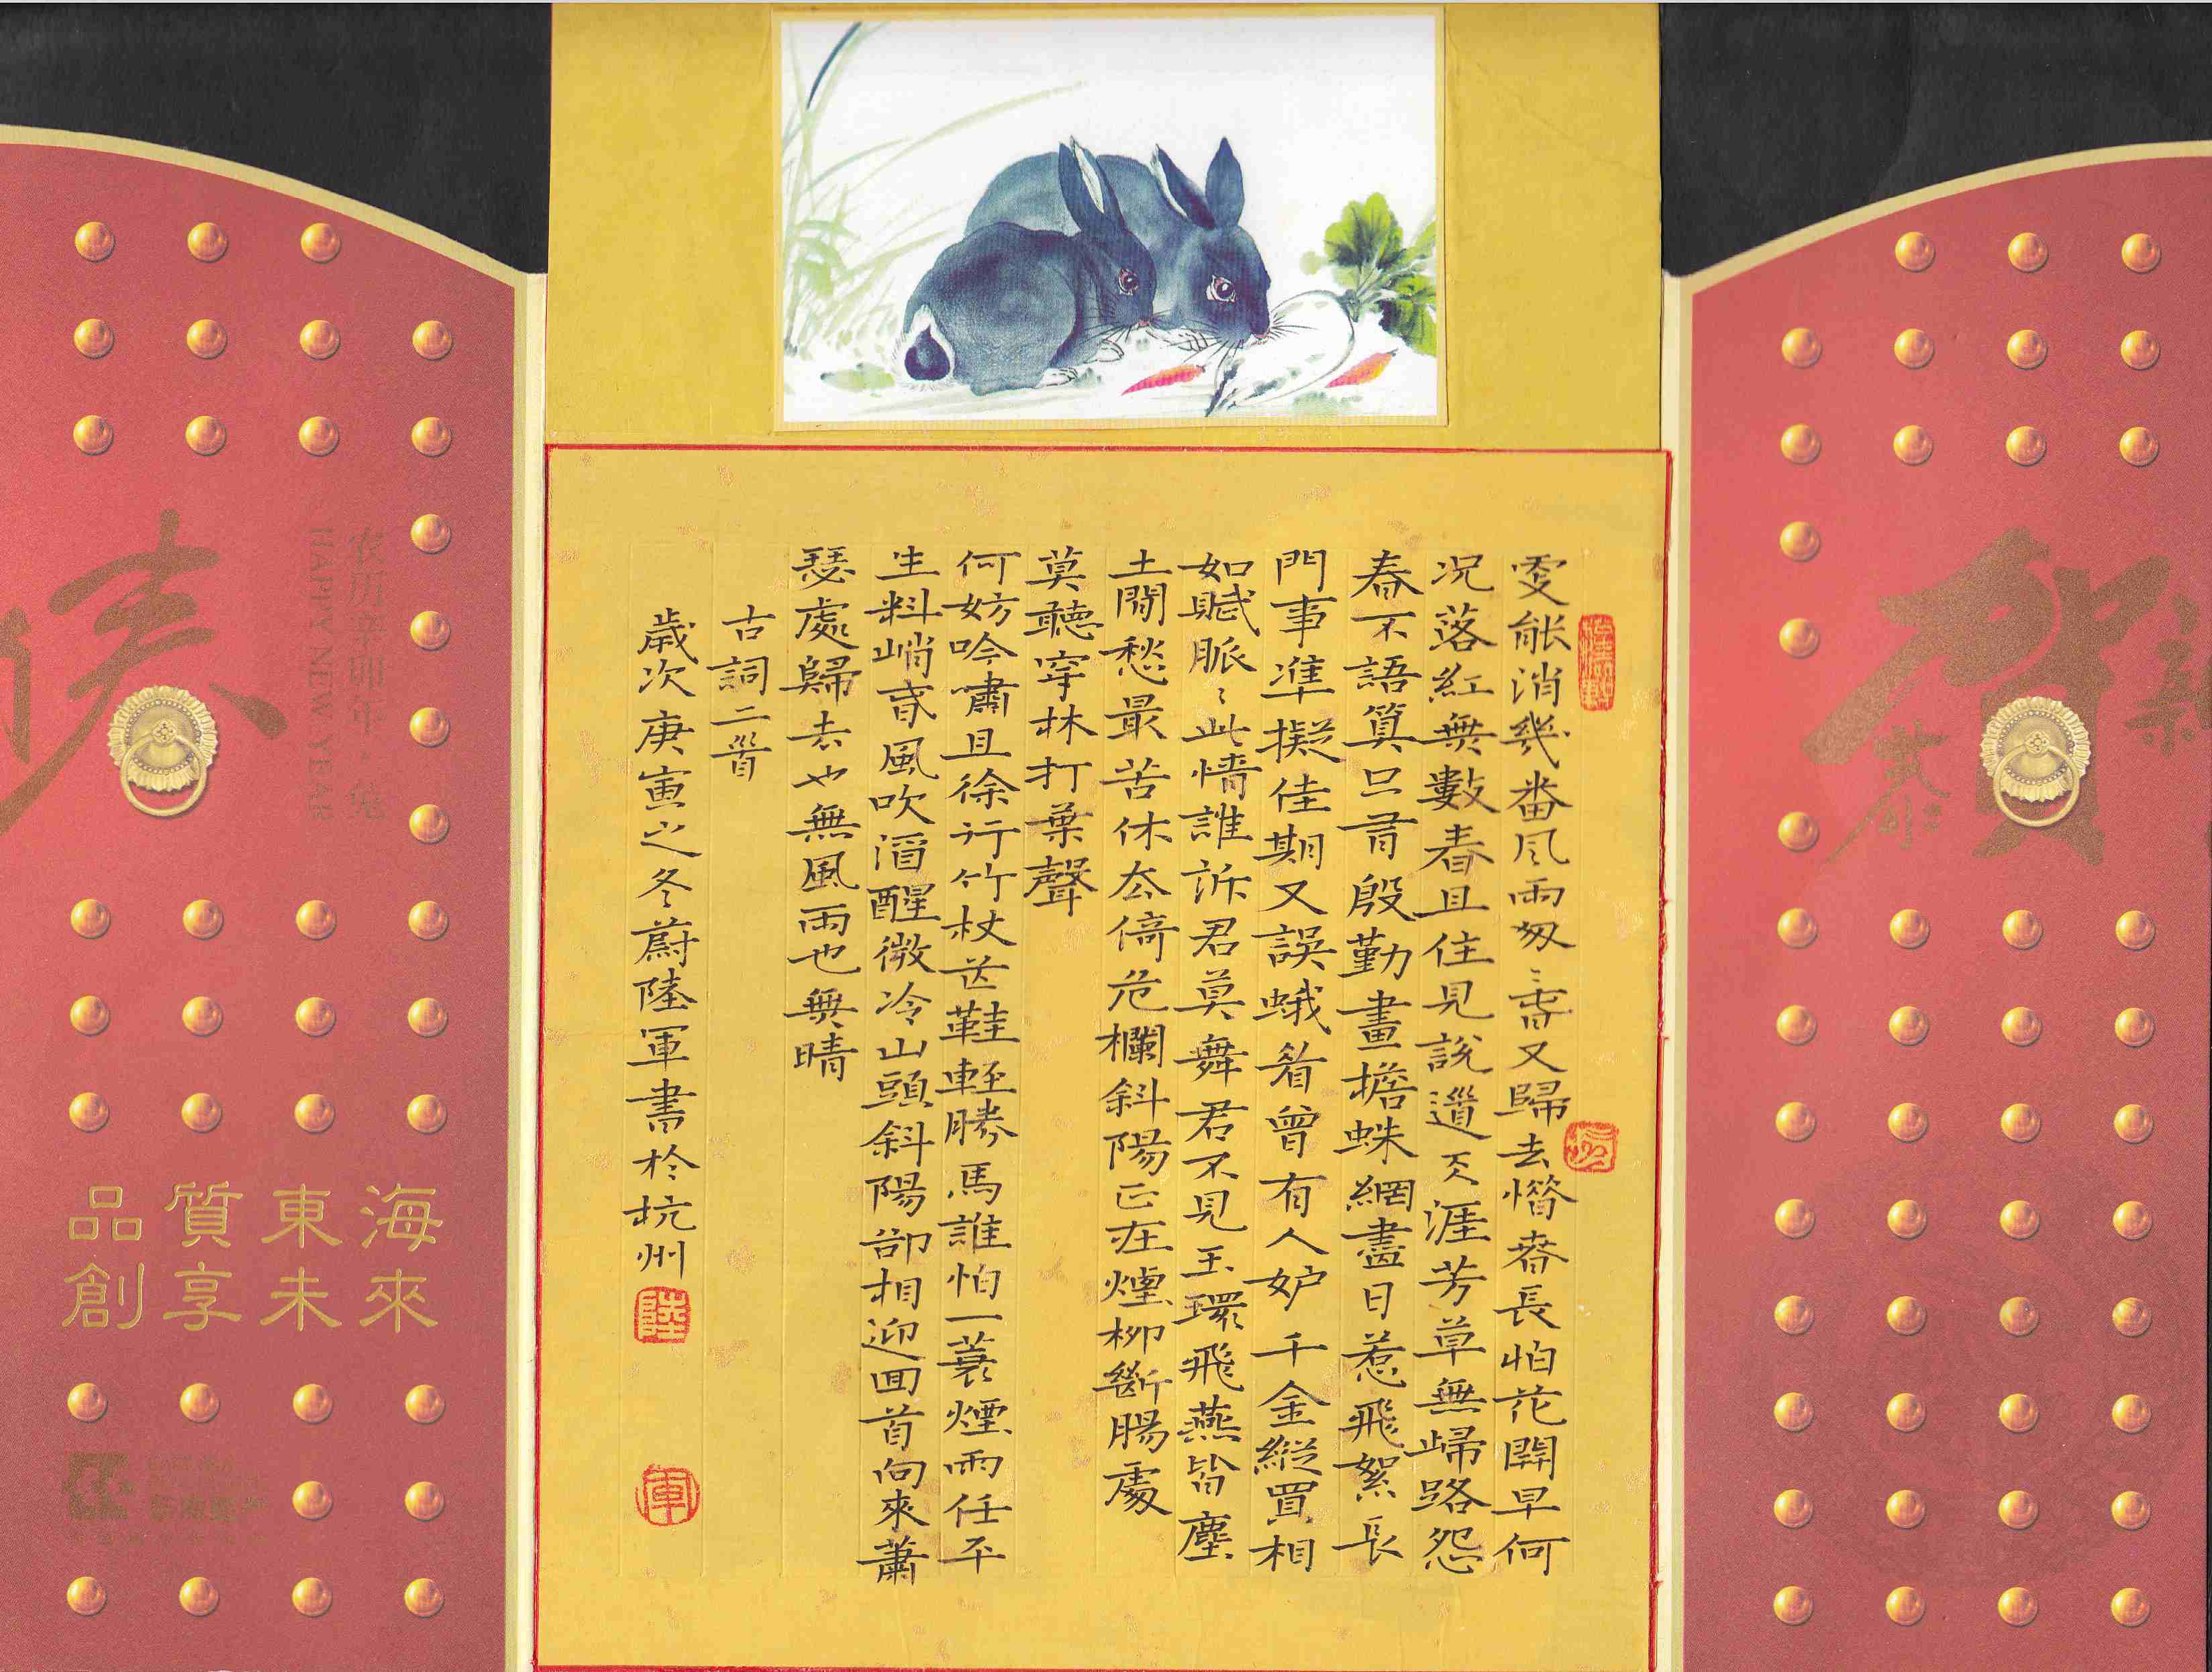 賀
更能消幾番風雨匆〻春又歸去惜春長怕花開早何
况落紅無數春且住見說道天涯芳草無歸路怨
春不語算只有殷勤畫檐蛛網盡日惹飛絮長
門事準擬佳期又誤蛾眉曾有人妒千金縱買相
如賦脈〻此情誰訴君莫舞君不見玉環飛燕皆塵
土閒愁最苦休去倚危欄斜陽正在煙柳斷腸處
莫聽穿林打葉聲
何妨吟嘯且徐行竹杖芒鞋輕勝馬誰怕一蓑煙雨任平
生料峭春風吹酒醒微冷山頭斜陽卻相迎回首向來蕭
瑟處歸去也無風雨也無晴
古詞二首
歲次庚寅之冬蔚陸軍書於杭州
陸
軍
农历辛卯年·兔
HAPPY NEW YEAR
品質東海
創享未來